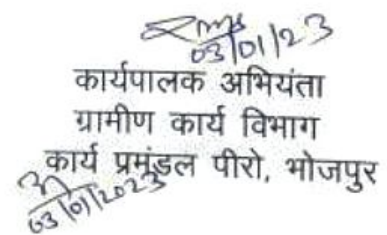 03/01/23
कार्यपालक अभियंता
ग्रामीण कार्य विभाग
कार्य प्रमंडल पीरो, भोजपुर
03/01/2023